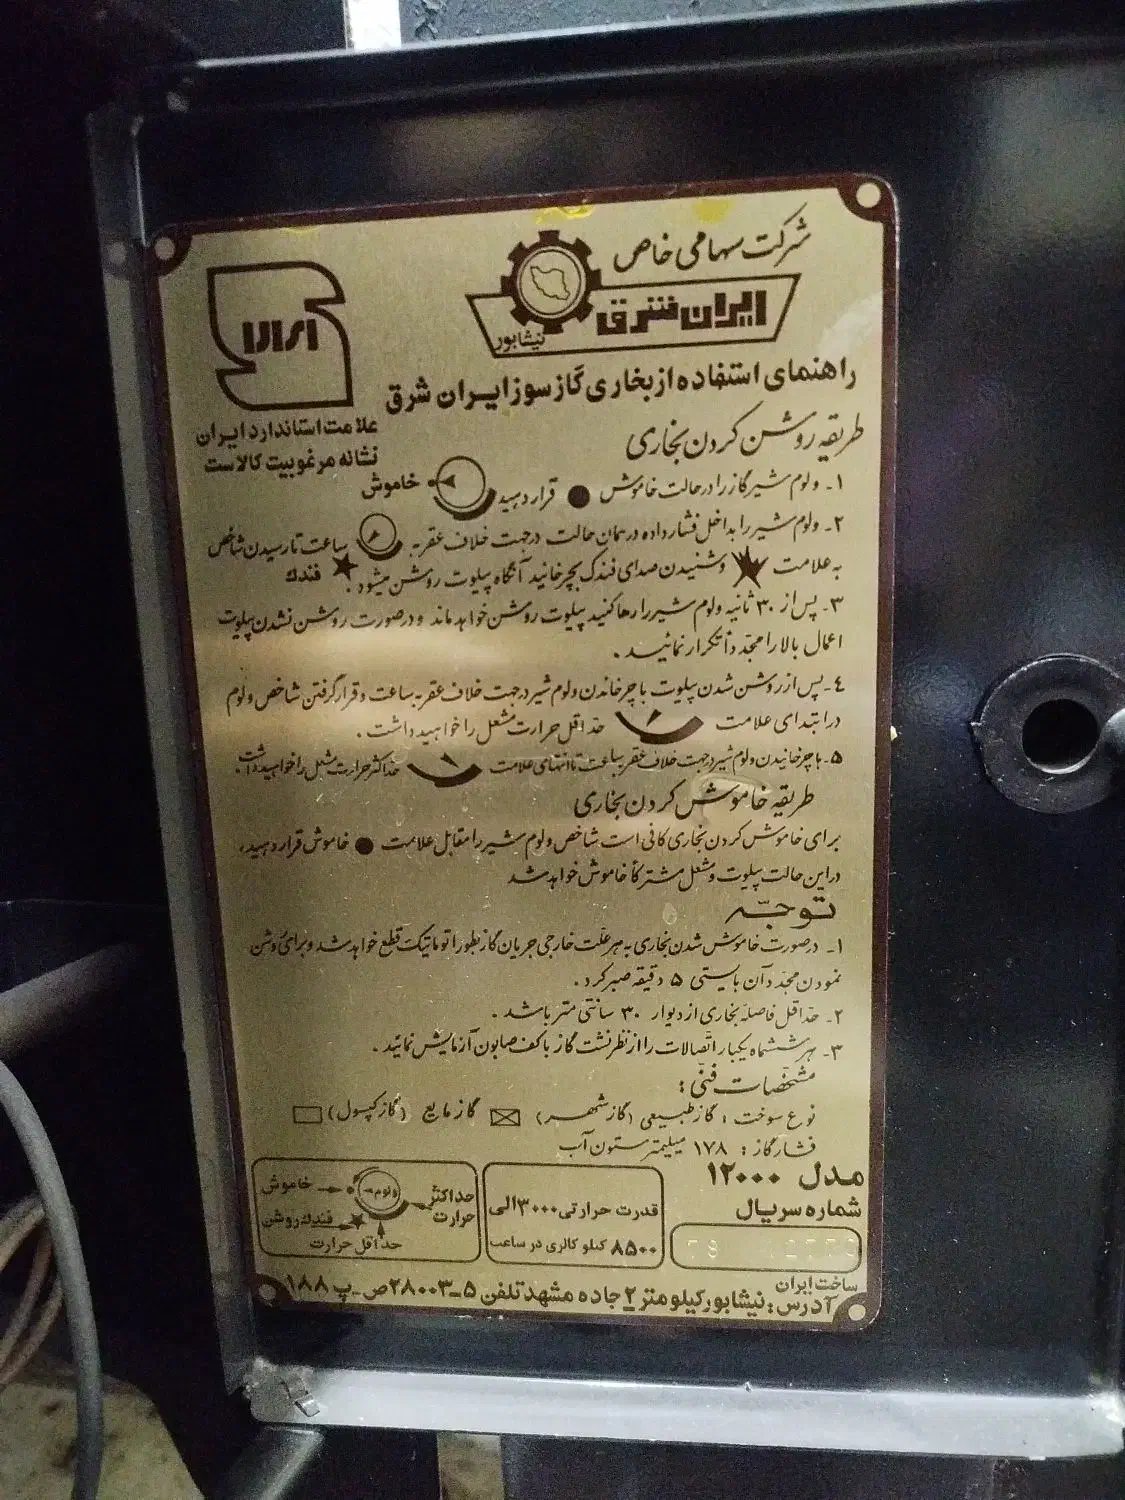 شرکت سهامی خاص
ایران شرق
نیشابور
علامت استاندارد ایران
نشانه مرغوبیت کالاست
راهنمای استفاده از بخاری گاز سوز ایران شرق
طریقه روشن کردن بخاری
۱- ولوم شیر گاز را در حالت خاموش ● قرار دهید خاموش
۲- ولوم شیر را بداخل فشار داده در همان حالت در جهت خلاف عقربه ساعت تا رسیدن شاخص
به علامت و شنیدن صدای فندک بچرخانید آنگاه پیلوت روشن میشود. فندک
۳- پس از ۳۰ ثانیه ولوم شیر را رها کنید پیلوت روشن خواهد ماند و در صورت روشن نشدن پیلوت
اعمال بالا را مجدداً تکرار نمائید.
۴- پس از روشن شدن پیلوت با چرخاندن ولوم شیر در جهت خلاف عقربه ساعت و قرار گرفتن شاخص ولوم
در ابتدای علامت حداقل حرارت مشعل را خواهید داشت.
۵- با چرخانیدن ولوم شیر در جهت خلاف عقربه ساعت تا انتهای علامت حداکثر حرارت مشعل را خواهید داشت.
طریقه خاموش کردن بخاری
برای خاموش کردن بخاری کافی است شاخص ولوم شیر را مقابل علامت ● خاموش قرار دهید،
در این حالت پیلوت و مشعل مشترکاً خاموش خواهد شد
توجّه
۱- در صورت خاموش شدن بخاری به هر علت خارجی جریان گاز بطور اتوماتیک قطع خواهد شد و برای روشن
نمودن مجدد آن بایستی ۵ دقیقه صبر کرد.
۲- حداقل فاصله بخاری از دیوار ۳۰ سانتی متر باشد.
۳- هر ششماه یکبار اتصالات را از نظر نشت گاز با کف صابون آزمایش نمائید.
مشخصات فنی:
نوع سوخت: گاز طبیعی (گاز شهر) ☒ گاز مایع (گاز کپسول) ☐
فشار گاز: ۱۷۸ میلیمتر ستون آب
مدل ۱۲۰۰۰
شماره سریال
قدرت حرارتی ۳۰۰۰ الی
۸۵۰۰ کیلو کالری در ساعت
حداکثر حرارت
ولوم
خاموش
فندک روشن
حداقل حرارت
ساخت ایران
آدرس: نیشابور کیلومتر ۲ جاده مشهد تلفن ۵-۲۸۰۰۳ ص-پ ۱۸۸